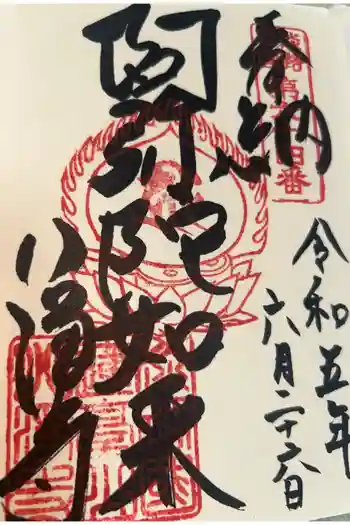 奉納
令和五年
六月二十六日
阿弥陀如来
八浄寺